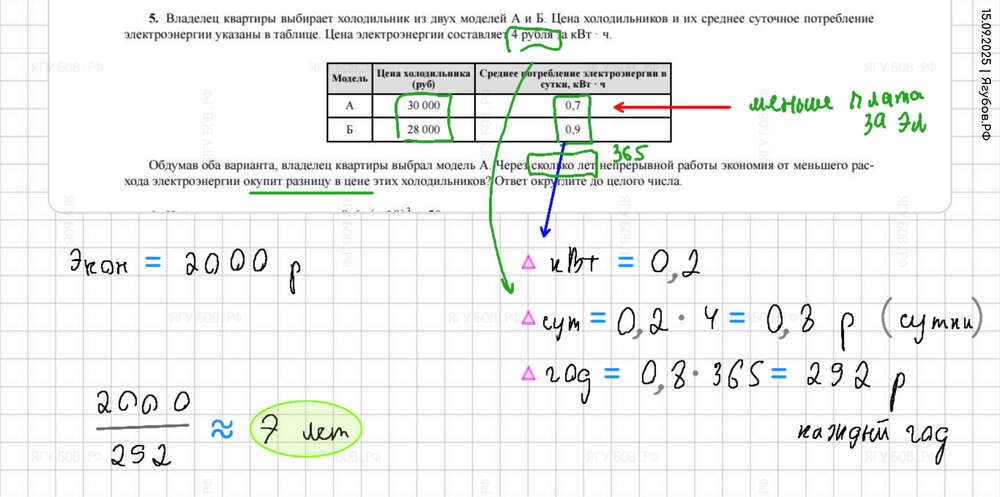 15.09.2025 | Ягубов.РФ
5. Владелец квартиры выбирает холодильник из двух моделей А и Б. Цена холодильников и их среднее суточное потребление
электроэнергии указаны в таблице. Цена электроэнергии составляет 4 рубля за кВт · ч.
Модель Цена холодильника (руб) Среднее потребление электроэнергии в сутки, кВт · ч
А 30 000 0,7
Б 28 000 0,9
меньше плата
за эл
365
Обдумав оба варианта, владелец квартиры выбрал модель А. Через сколько лет непрерывной работы экономия от меньшего рас-
хода электроэнергии окупит разницу в цене этих холодильников? Ответ округлите до целого числа.
Экон = 2000 р
Δ кВт = 0,2
Δ сут = 0,2 · 4 = 0,8 р (сутки)
Δ год = 0,8 · 365 = 292 р
каждый год
2000
292
≈ 7 лет